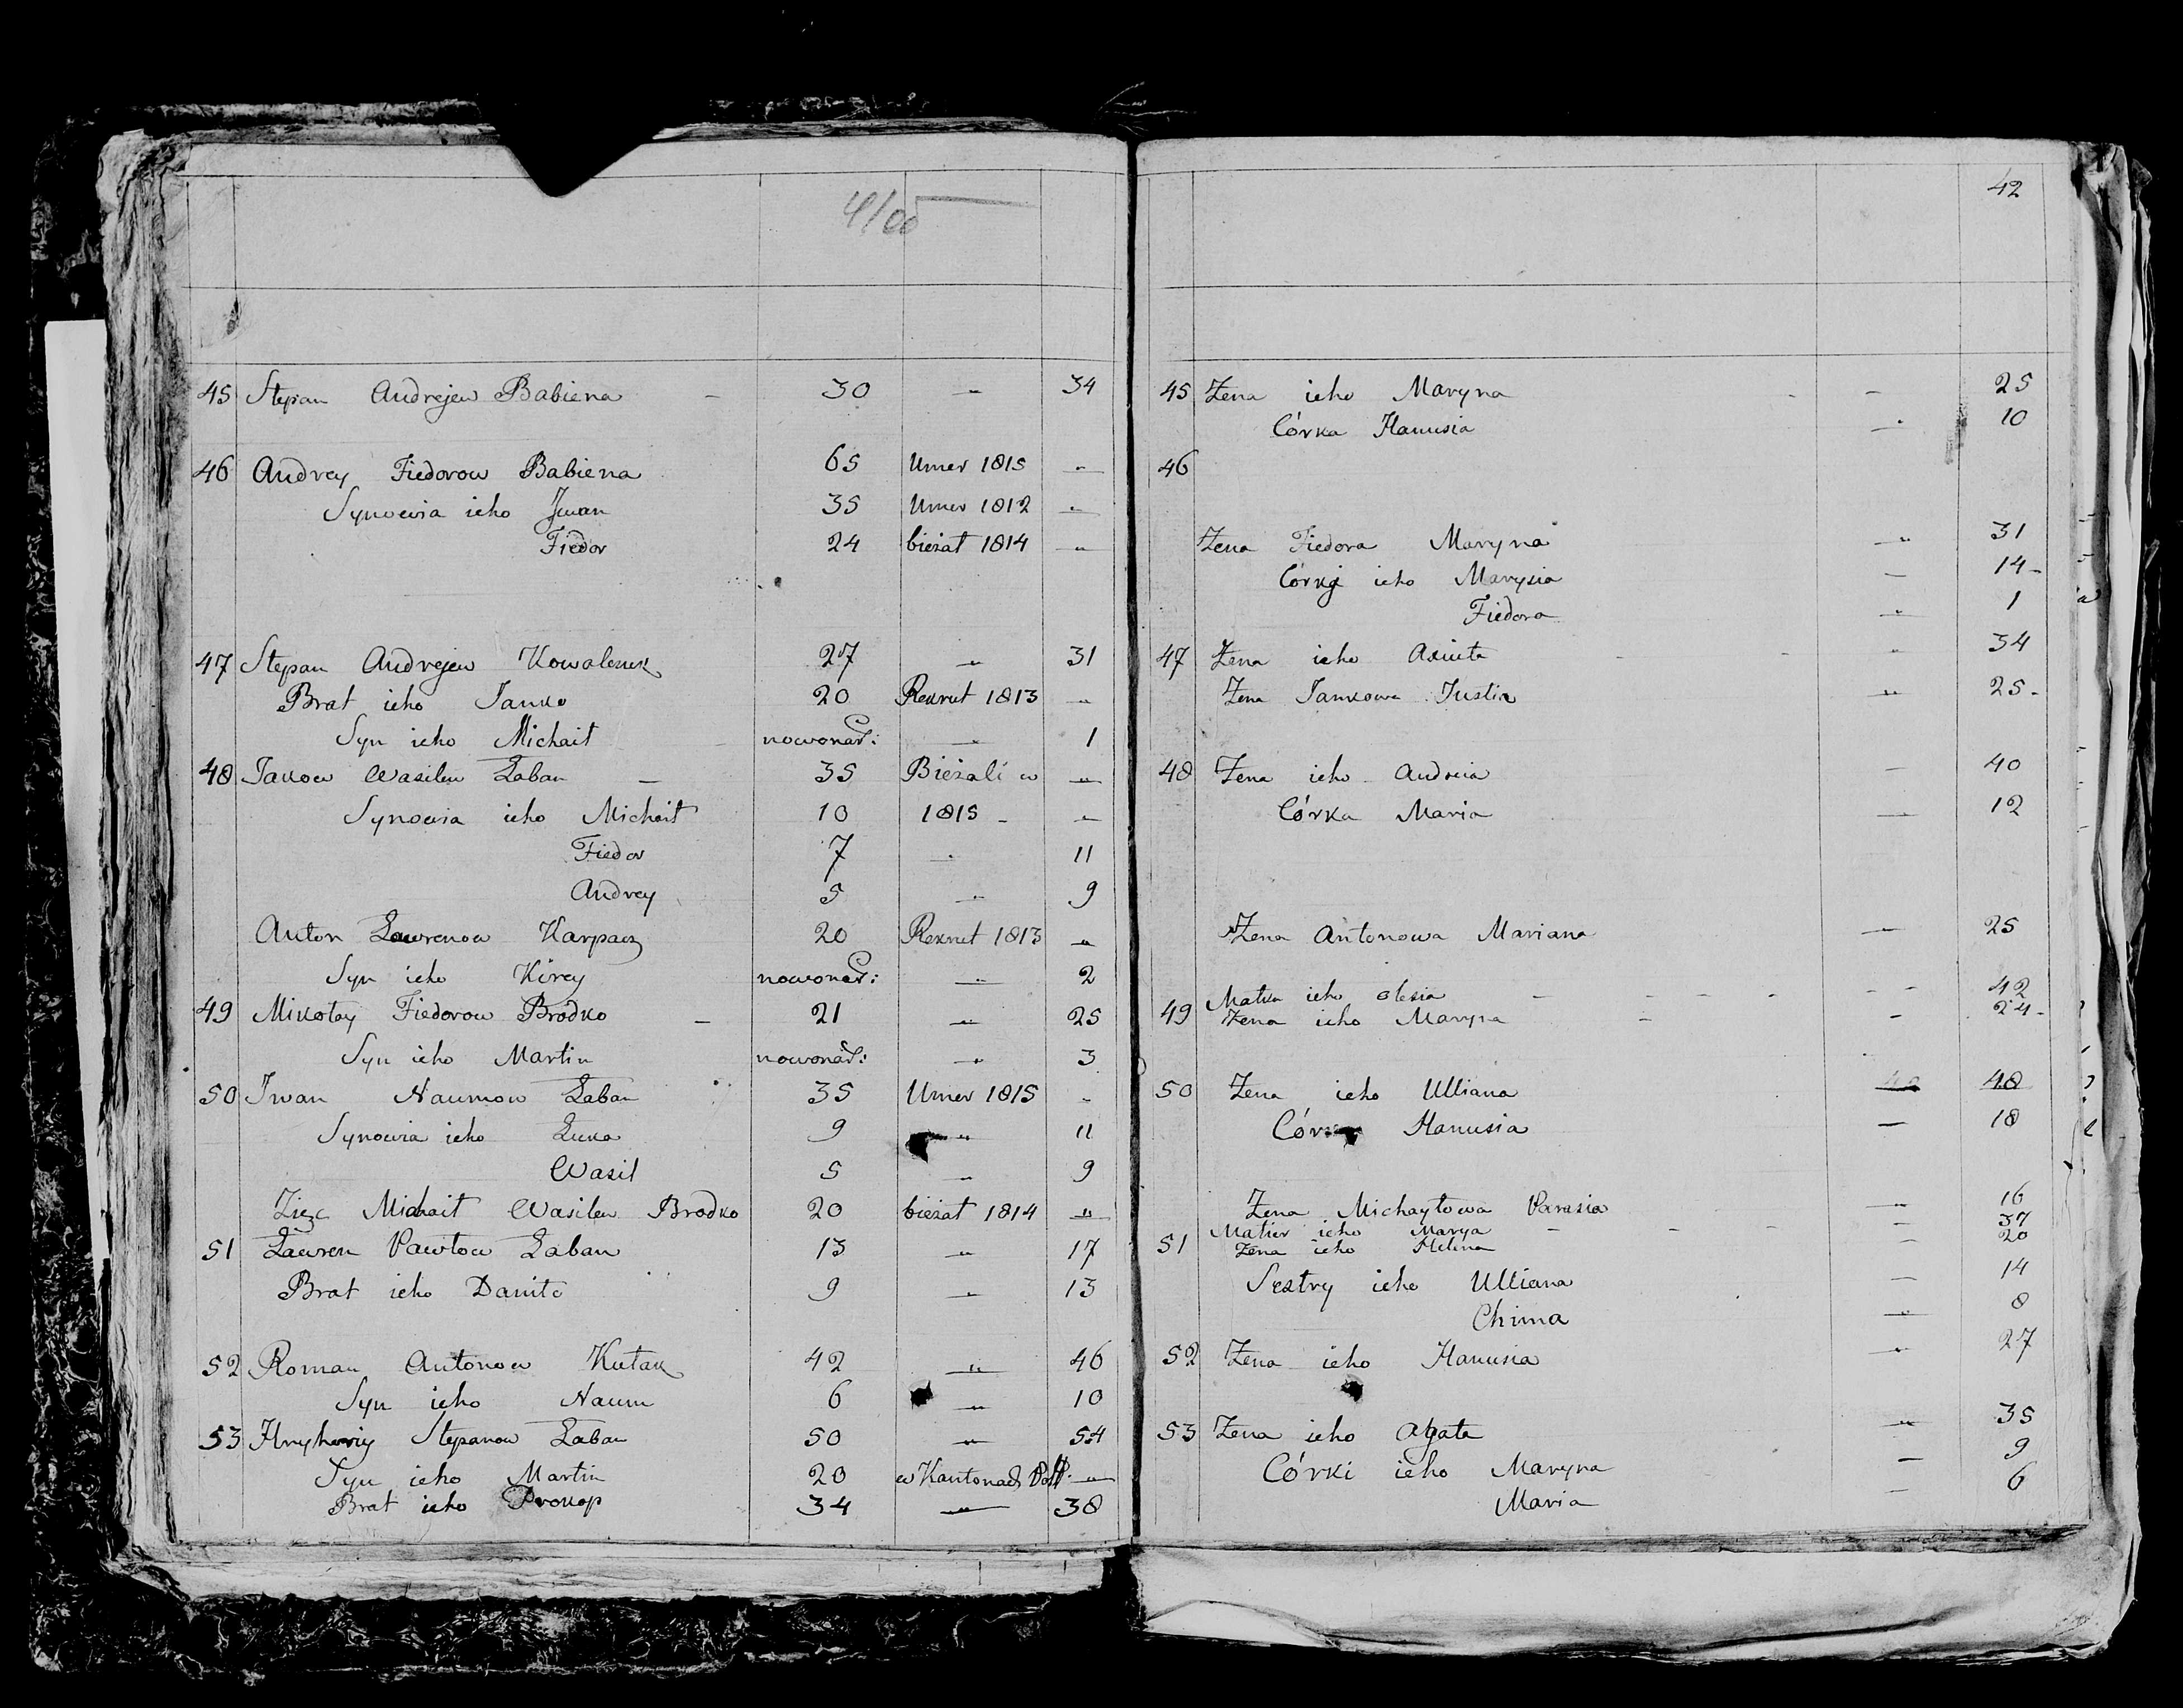 45 Stepan Andrejew Babiena - 30 - 34
46 Andrey Fiedorow Babiena 65 Umer 1815 -
Synowia ieho Jwan 35 Umer 1812 -
Fiedor 24 bieżał 1814 -
47 Stepan Andrejew Kowalenek 27 - 31
Brat ieho Janko 20 Rekrut 1813 -
Syn ieho Michaił nowonar: - 1
48 Jakow Wasilew Łaban - 35 Bieżali w -
Synowia ieho Michaił 10 1815 - -
Fiedor 7 - 11
Andrey 5 - 9
Anton Ławrenow Karpacz 20 Rekrut 1813 -
Syn ieho Kirey nowonar: - 2
49 Mikołay Fiedorow Brodko - 21 - 25
Syn ieho Martin nowonar: - 3
50 Iwan Naumow Łaban 35 Umer 1815 -
Synowia ieho Łuka 9 - 11
Wasil 5 - 9
Zięć Michaił Wasilew Brodko 20 bieżał 1814 -
51 Ławren Pawłow Łaban 13 - 17
Brat ieho Daniło 9 - 13
52 Roman Antonow Kutak 42 - 46
Syn ieho Naum 6 - 10
53 Hryhoriy Stepanow Łaban 50 - 54
Syn ieho Martin 20 w Kantonach -
Brat ieho Prokop 34 - 38
42
45 Żena ieho Maryna - 25
Córka Hanusia - 10
46
Żena Fiedora Maryna - 31
Córki ieho Marysia - 14-
Fiedora - 1
47 Żena ieho Axiuta - 34
Żena Jankowa Justia - 25-
48 Żena ieho Andreia - 40
Córka Maria - 12
Żena Antonowa Mariana - 25
Matka ieho Olesia - 42
49 Żena ieho Maryna - 24-
50 Żena ieho Ulliana 48
Córka Hanusia - 18
Żena Michayłowa Parasia - 16
Matier ieho Marya - 37
51 Żena ieho Helena - 20
Sestry ieho Ulliana - 14
Chima - 8
52 Żena ieho Hanusia - 27
53 Żena ieho Agata - 35
Córki ieho Maryna - 9
Maria - 6